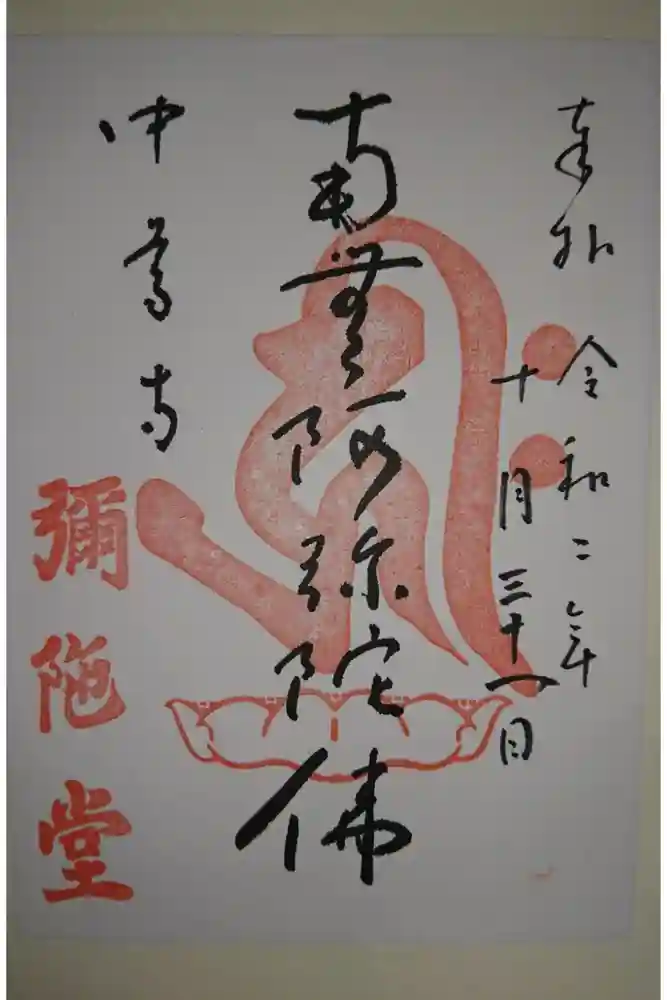 奉拝 令和二年
十月三十一日
南無阿弥陀佛
中尊寺
彌陁堂